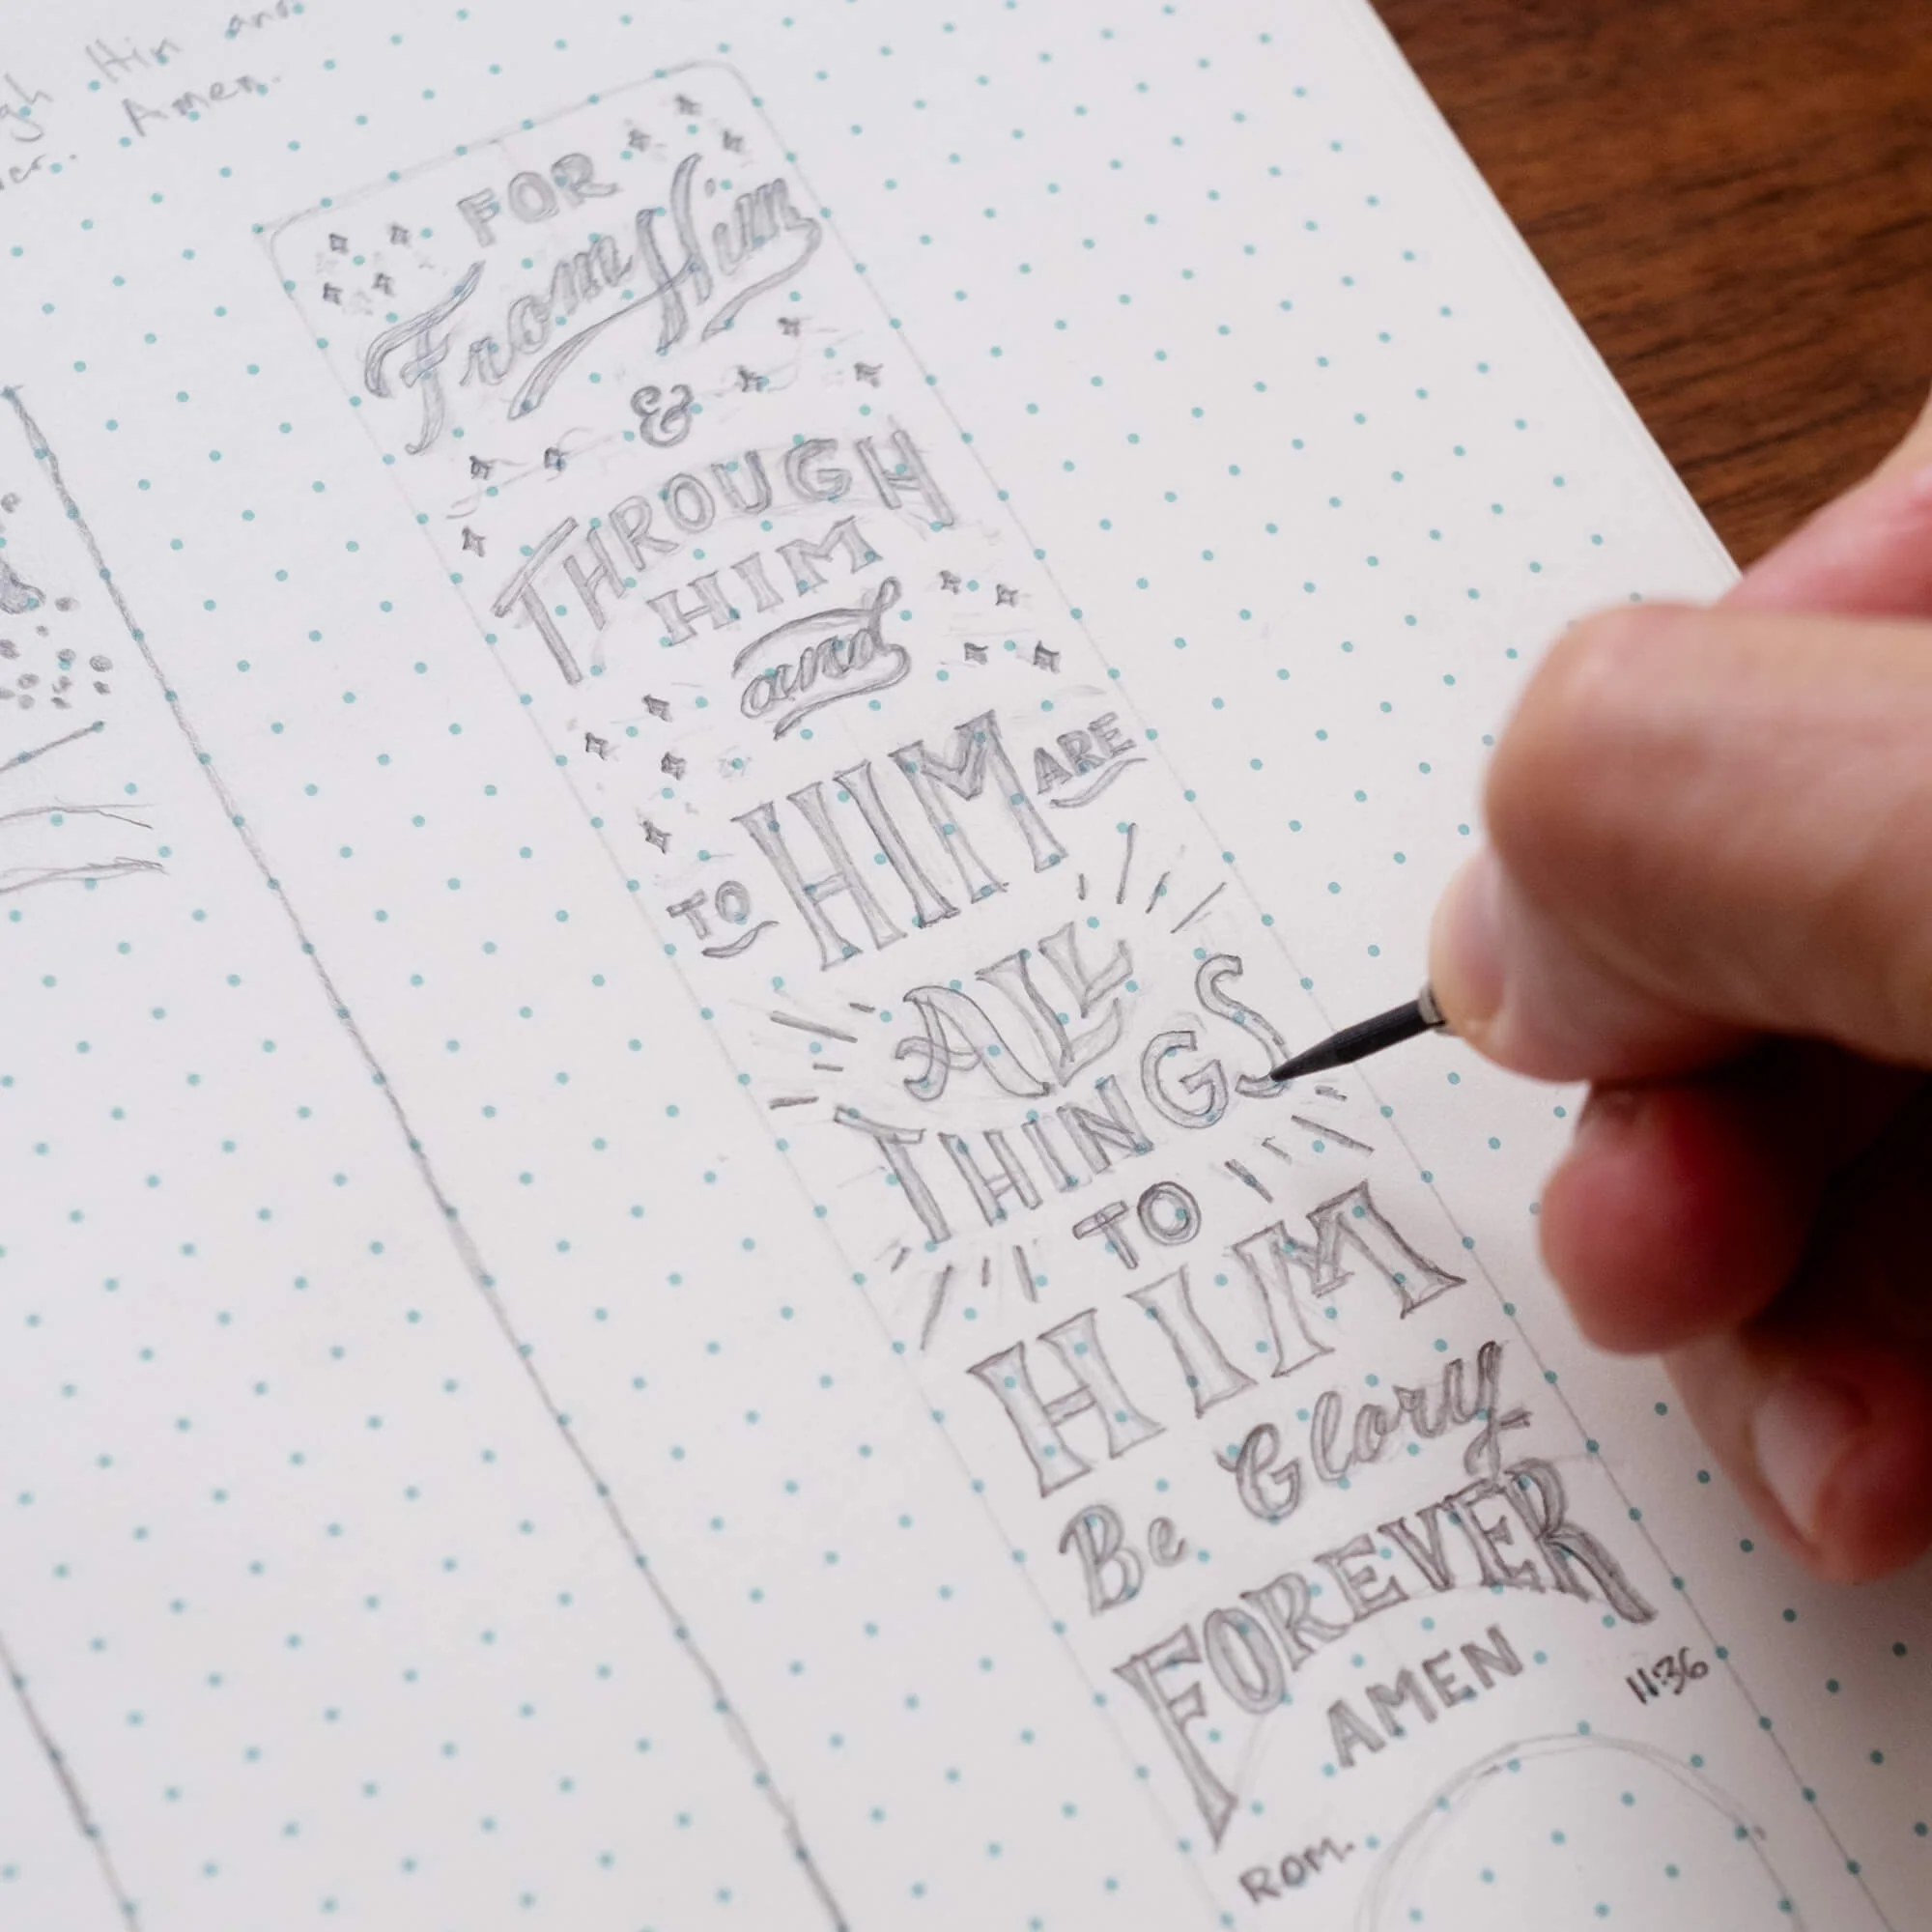 Him and
Amen.
FOR
From Him
&
THROUGH
HIM
and
TO HIM ARE
ALL
THINGS
TO
HIM
Be Glory
FOREVER
AMEN
ROM. 11:36